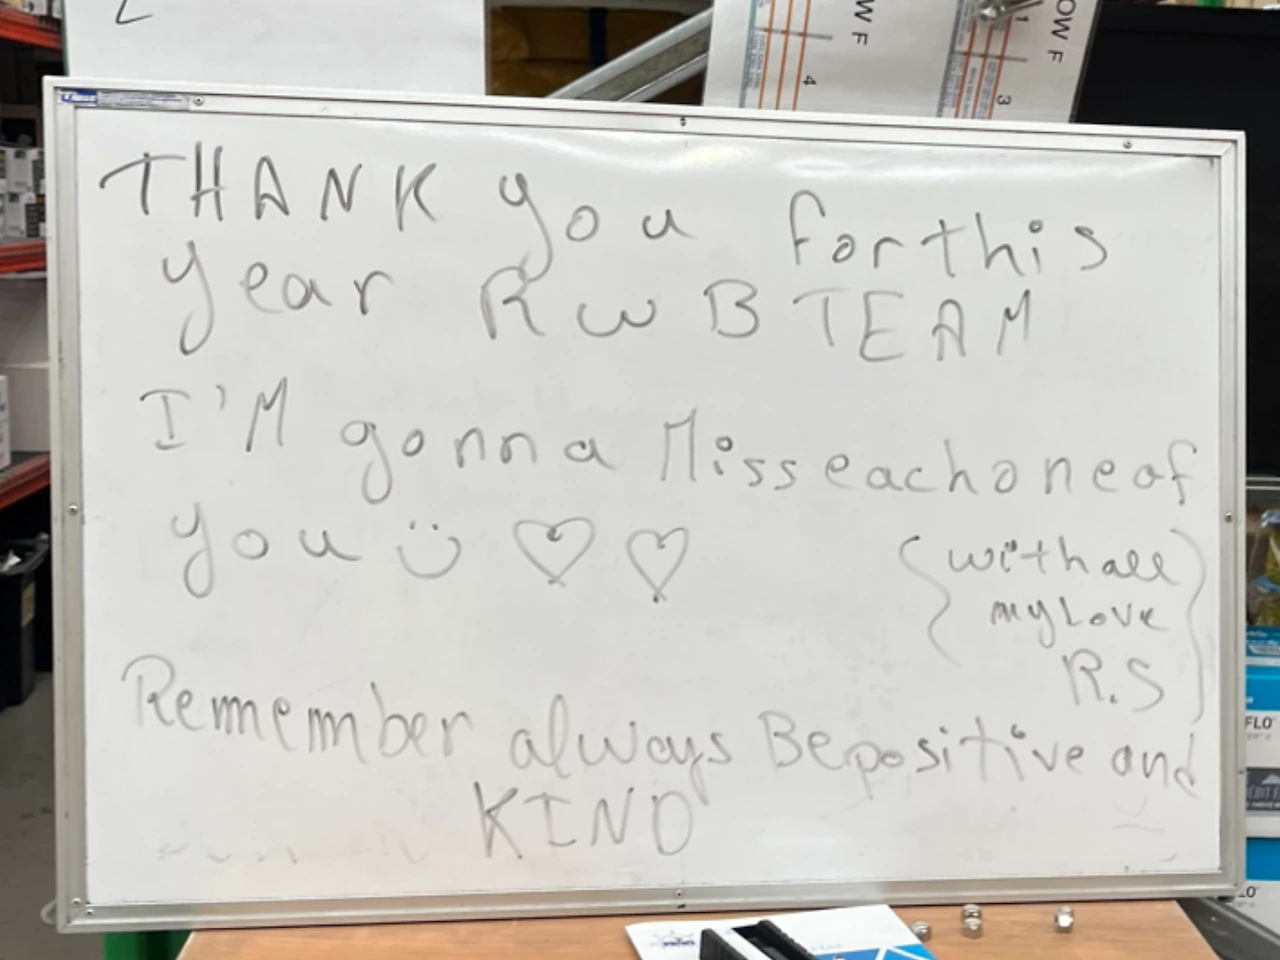 OW F
OW F
1
4
3
THANK you for this
year RWB TEAM
I'M gonna Miss each one of
you
with all
my Love
R.S
Remember always Be positive and
KIND
FLO